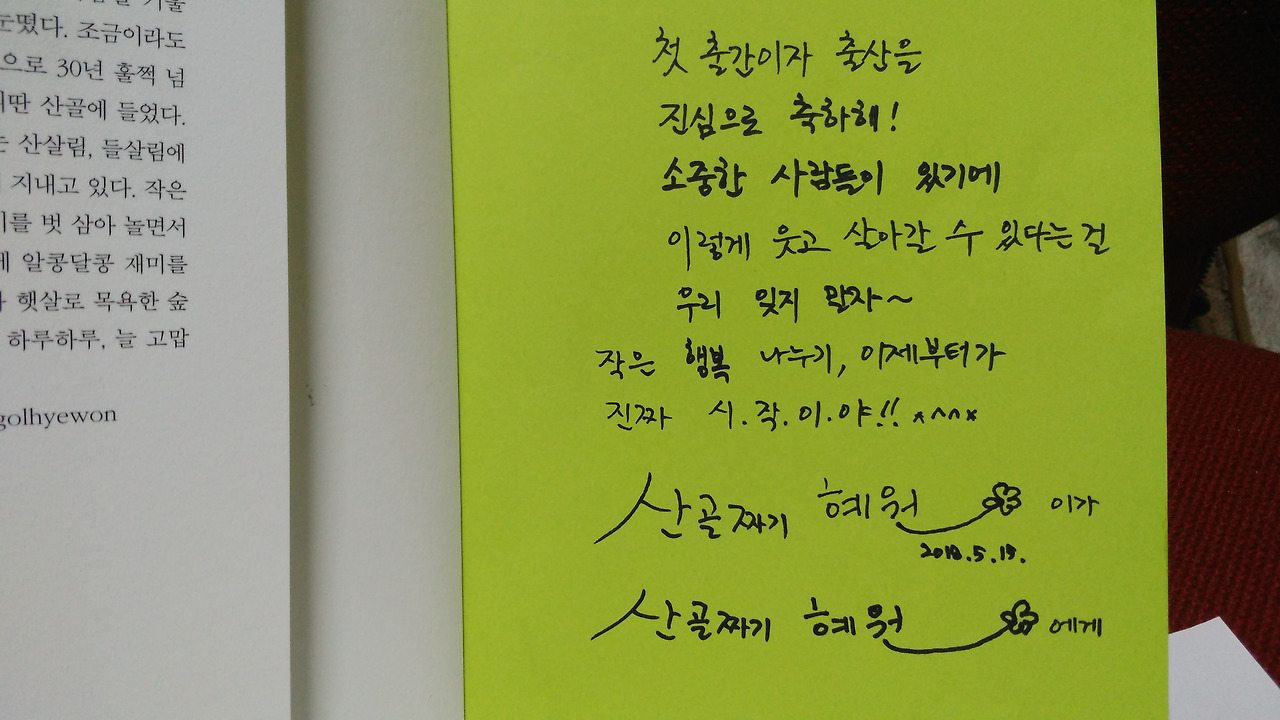 눈떴다. 조금이라도
으로 30년 훌쩍 넘
산골에 들었다.
산살림, 들살림에
지내고 있다. 작은
벗 삼아 놀면서
알콩달콩 재미를
햇살로 목욕한 숲
하루하루, 늘 고맙
golhyewon
첫 출간이자 출산을
진심으로 축하해!
소중한 사람들이 있기에
이렇게 웃고 살아갈 수 있다는 걸
우리 잊지 말자~
작은 행복 나누기, 이제부터가
진짜 시.작.이.야!! *^^*
산골짜기 혜원 이가
2018.5.19.
산골짜기 혜원 에게